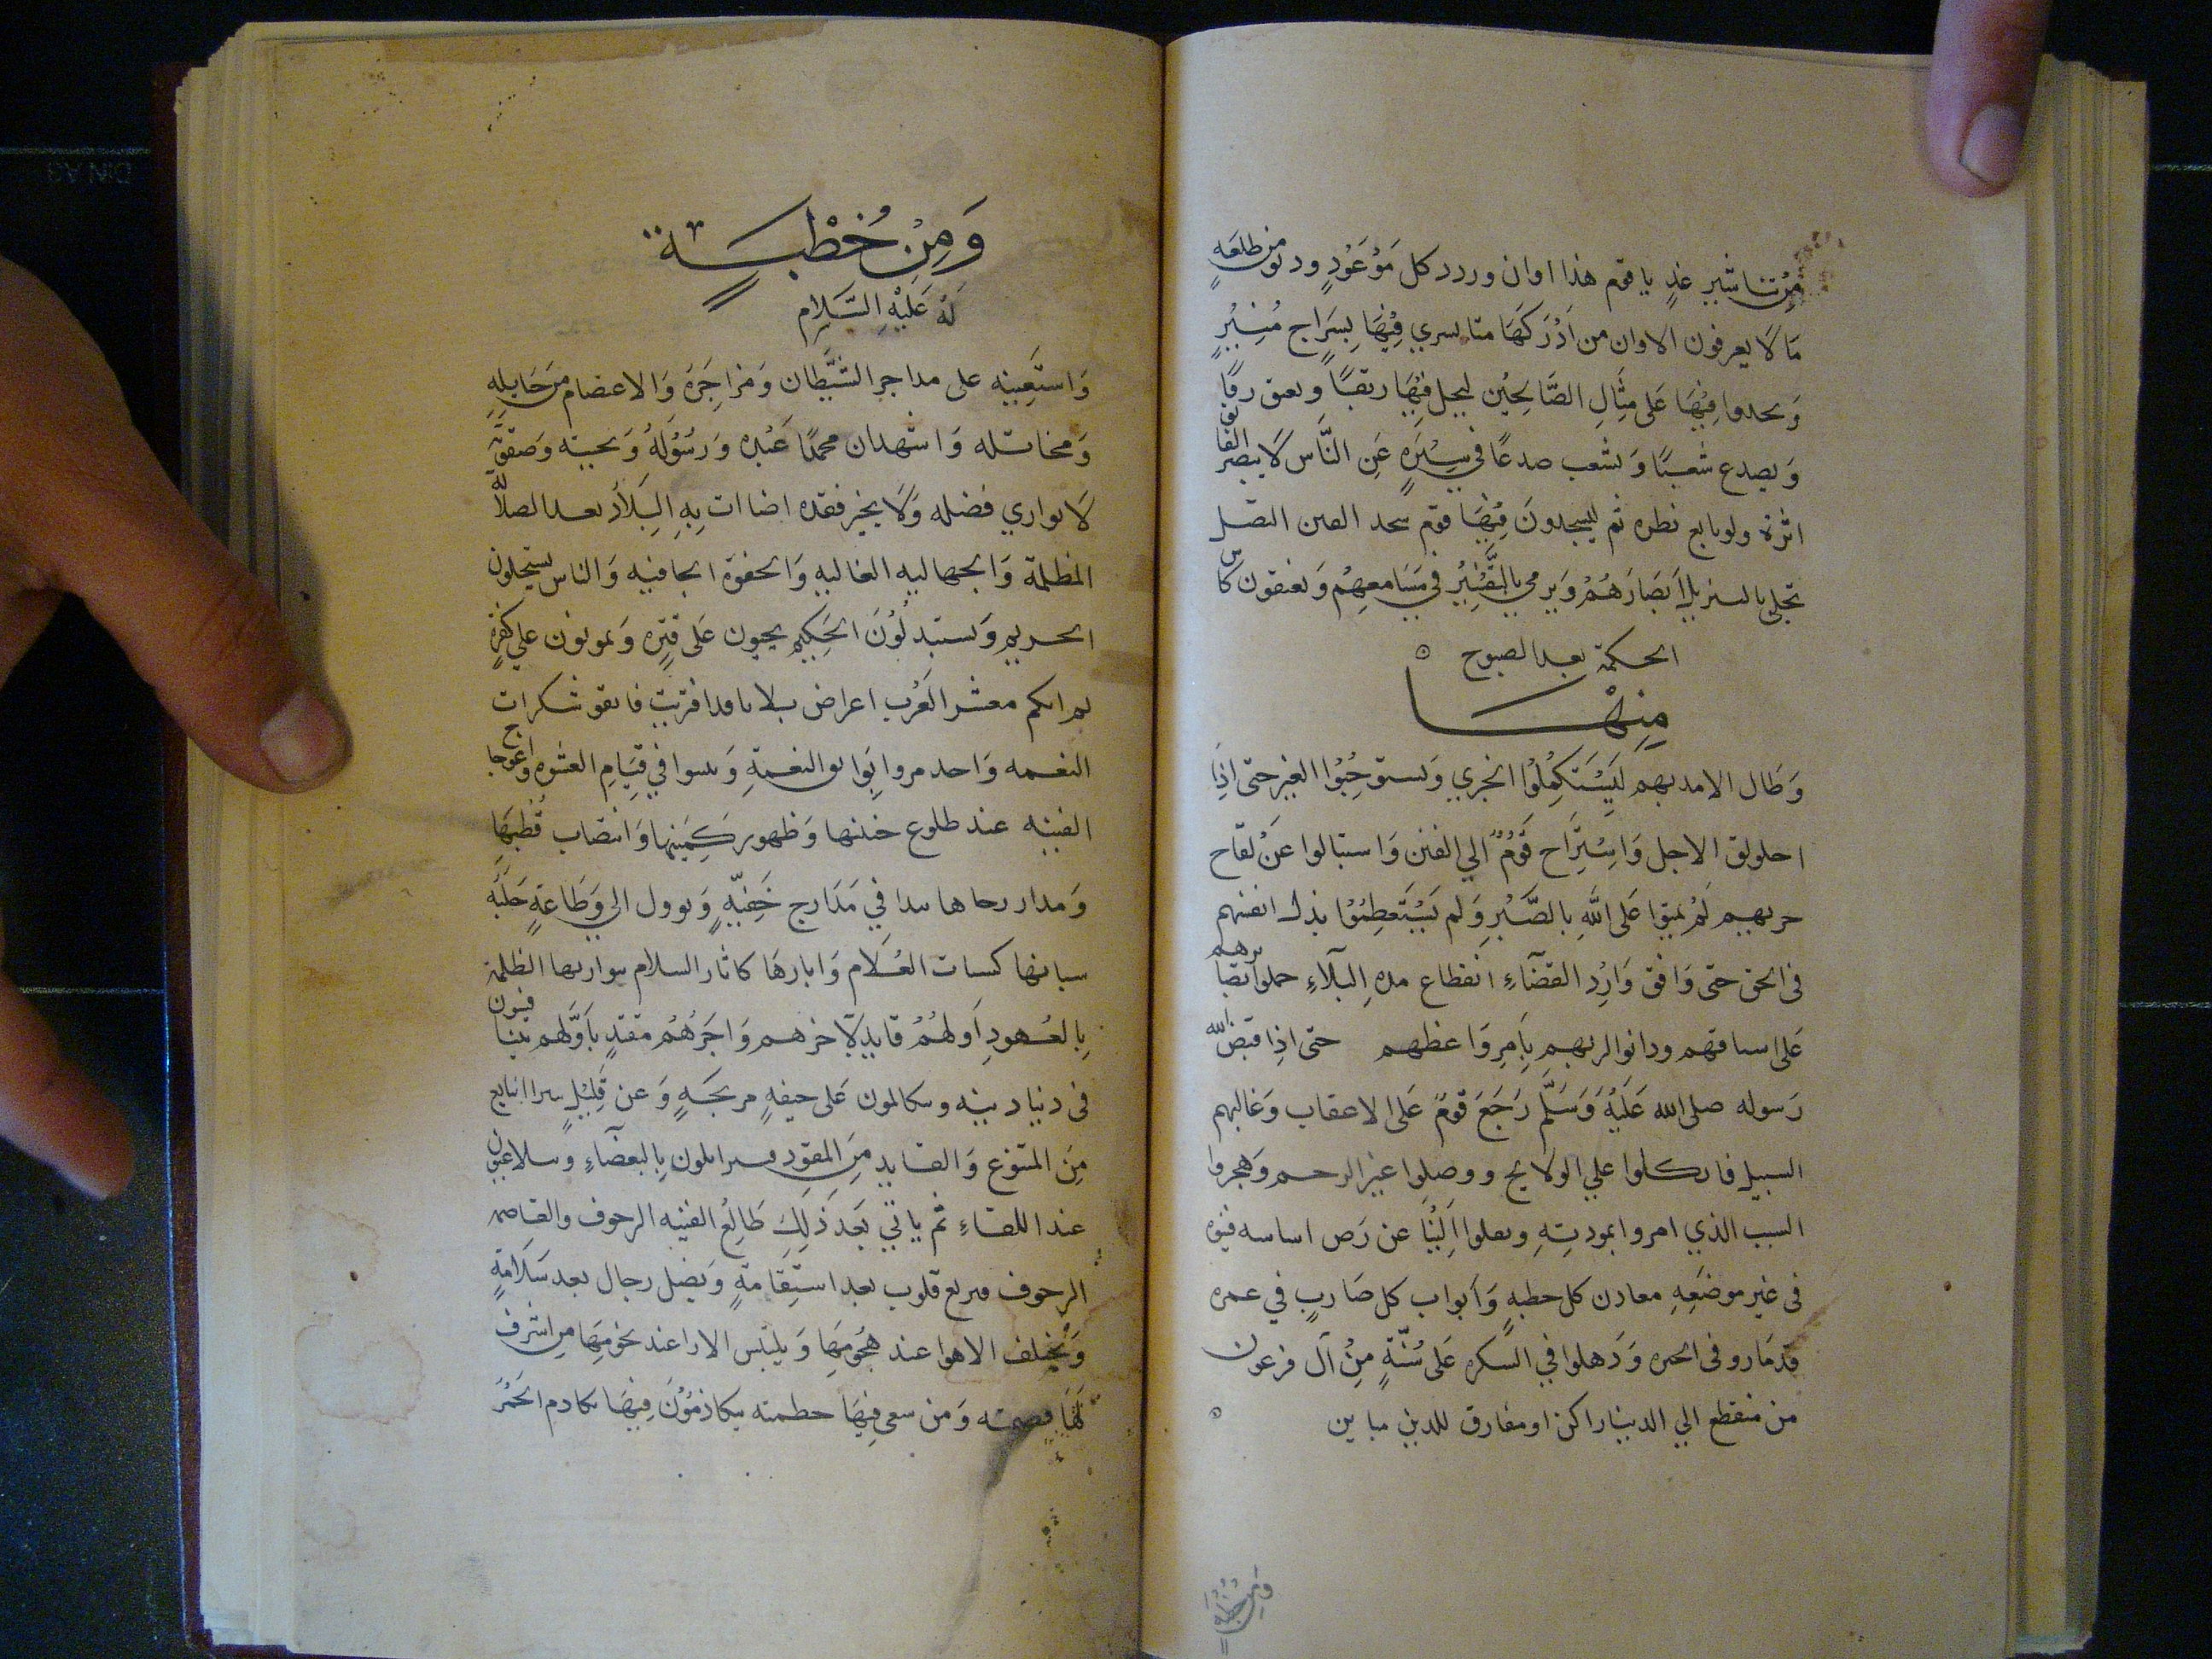 من تباشير غدٍ يا قوم هذا اوان ورود كل مَوْعُودٍ ودنو من طلعَهِ
مَا لَا يعرفون الاوان من اَدْرَكَهَا منا يسري فِيْهَا بِسِرَاجٍ مُنِيْرٍ
وَيحدوا فِيْهَا عَلى مِثَالِ الصَّالِحِيْن ليحل فِيْهَا ربقًا ويعتق رقًا
وَيصدع شعبًا وَيشعب صدعًا في سِتْرَةٍ عَنِ النَّاس لَا يبصر القايف
اثرة ولو تابع نظره ثم ليشحذن فِيْهَا قوم شحذ القين النصل
تجلى بالتنزيل اَبصَارَهُمْ وَيرمى بِالتَّفْسِيْرِ في مَسَامعهِمْ وَيغبقون كاس
الحكمة بعد الصبوح ه
مِنْهَا
وَطَال الامد بهم لِيَسْتَكمِلُوْا الخزي وَيستوجِبُوْا الغير حتى اذَا
احلولق الاجل وَاسْتَرَاح قَوْمٌ الي الفتن وَاشتالوا عَنْ لقاح
حربهم لَمْ يمنوا عَلى اللهِ بالصَّبْرِ وَلم يَسْتَعْظِمُوْا بذل انفسهم
فى الحق حتى وَافق وَارِد القضَاءِ انقطاع مدهِ البَلَاءِ حملوا بصايرهم
عَلى اسيافهم ودانوا لربهم بِاَمرِ وَاعظهم حتى اذِا قبض الله
رَسوله صلى الله عَليْهِ وَسَلَّم رَجَعَ قومٌ عَلى الاعقاب وَغالتهم
السبيل فاتكلوا على الولايج ووصلوا غير الرحم وَهجروا
السبب الذي امروا بمودتِهِ ونقلوا البناء عن رَص اساسه فبنوه
فى غير موضعِهِ معادن كل خطيهٍ وَاَبواب كل ضَاربٍ في غمره
قد مَاروا فى الحيره وَذَهلوا في السكره عَلى سُنَّةٍ مِنْ آل فرعون
من منقطع الي الدنيا راكن او مفارق للدين مباين ه
وَمِنْ خُطْبَة
لَهُ عَليْهِ السَّلام
وَاستَعينه على مداحر الشيْطان وَمزاجَرهَ وَالاعتصام من حَبايلِهِ
وَمخاتله وَاشهد ان محمدًا عَبْده وَرسُوْلهُ وَنجيبه وَصفوته
لَا يوازي فضله وَلَا يجبر فقده اضاات بِهِ البَلَادُ بعد الضلالة
المظلمة وَالجهاليه الغالبه وَالجفوة الجافيه وَالناس يستحلون
الحريم وَيستذلُوْنَ الحَكِيم يحيون عَلى فترَه وَيموتون على كفرةٍ
ثم انكم معشر العَرَب اعراض بلايا قد اقتربت فاتقوا سكرات
النعمه وَاحذروا بَوَايق النقمةِ وَتثبتوا في قتَامِ العشوه وَاعوجاج
الفتنه عند طلوع جنينها وَظهور كَمِيْنِها وَانتصاب قُطْبِهَا
وَمدار رحاها تبدا فِي مَدَارج خَفِيّهٍ وَتوول الى فظَاعةٍ جَليَّه
شبابها كشباب الغُلَام وَاثارهَا كاثار السلام يتوارثها الظلمة
بِالعُهودِ اَولهُمْ قايد لآخرهم وَاخِرُهُمْ مقتدٍ باَوَّلهم يتنافسون
فى دنيا دنيه ويتكالبون عَلى جيفهٍ مريحَهٍ وَعن قَلِيْلٍ يتبرا التابع
مِنَ المتبوع وَالقايد مِنَ المقودِ فيتزايلون بِالبغضَاءِ وَيتلاعنون
عند اللقاءِ ثم ياتي بَعَد ذَلِكَ طَالِعُ الفتنه الرجوف والقاصمه
الزحوف فتزيغ قلوب بعد استِقامةٍ وَيضل رجال بعد سَلَامةٍ
وَتختلف الاهوا عند هُجومِهَا وَيلتبس الارا عند نجومِهَا من اشرَف
لهَا قصمته وَمن سعى فِيْهَا حطمته يتكادمُوْنَ فِيْهَا تكادم الحُمُر